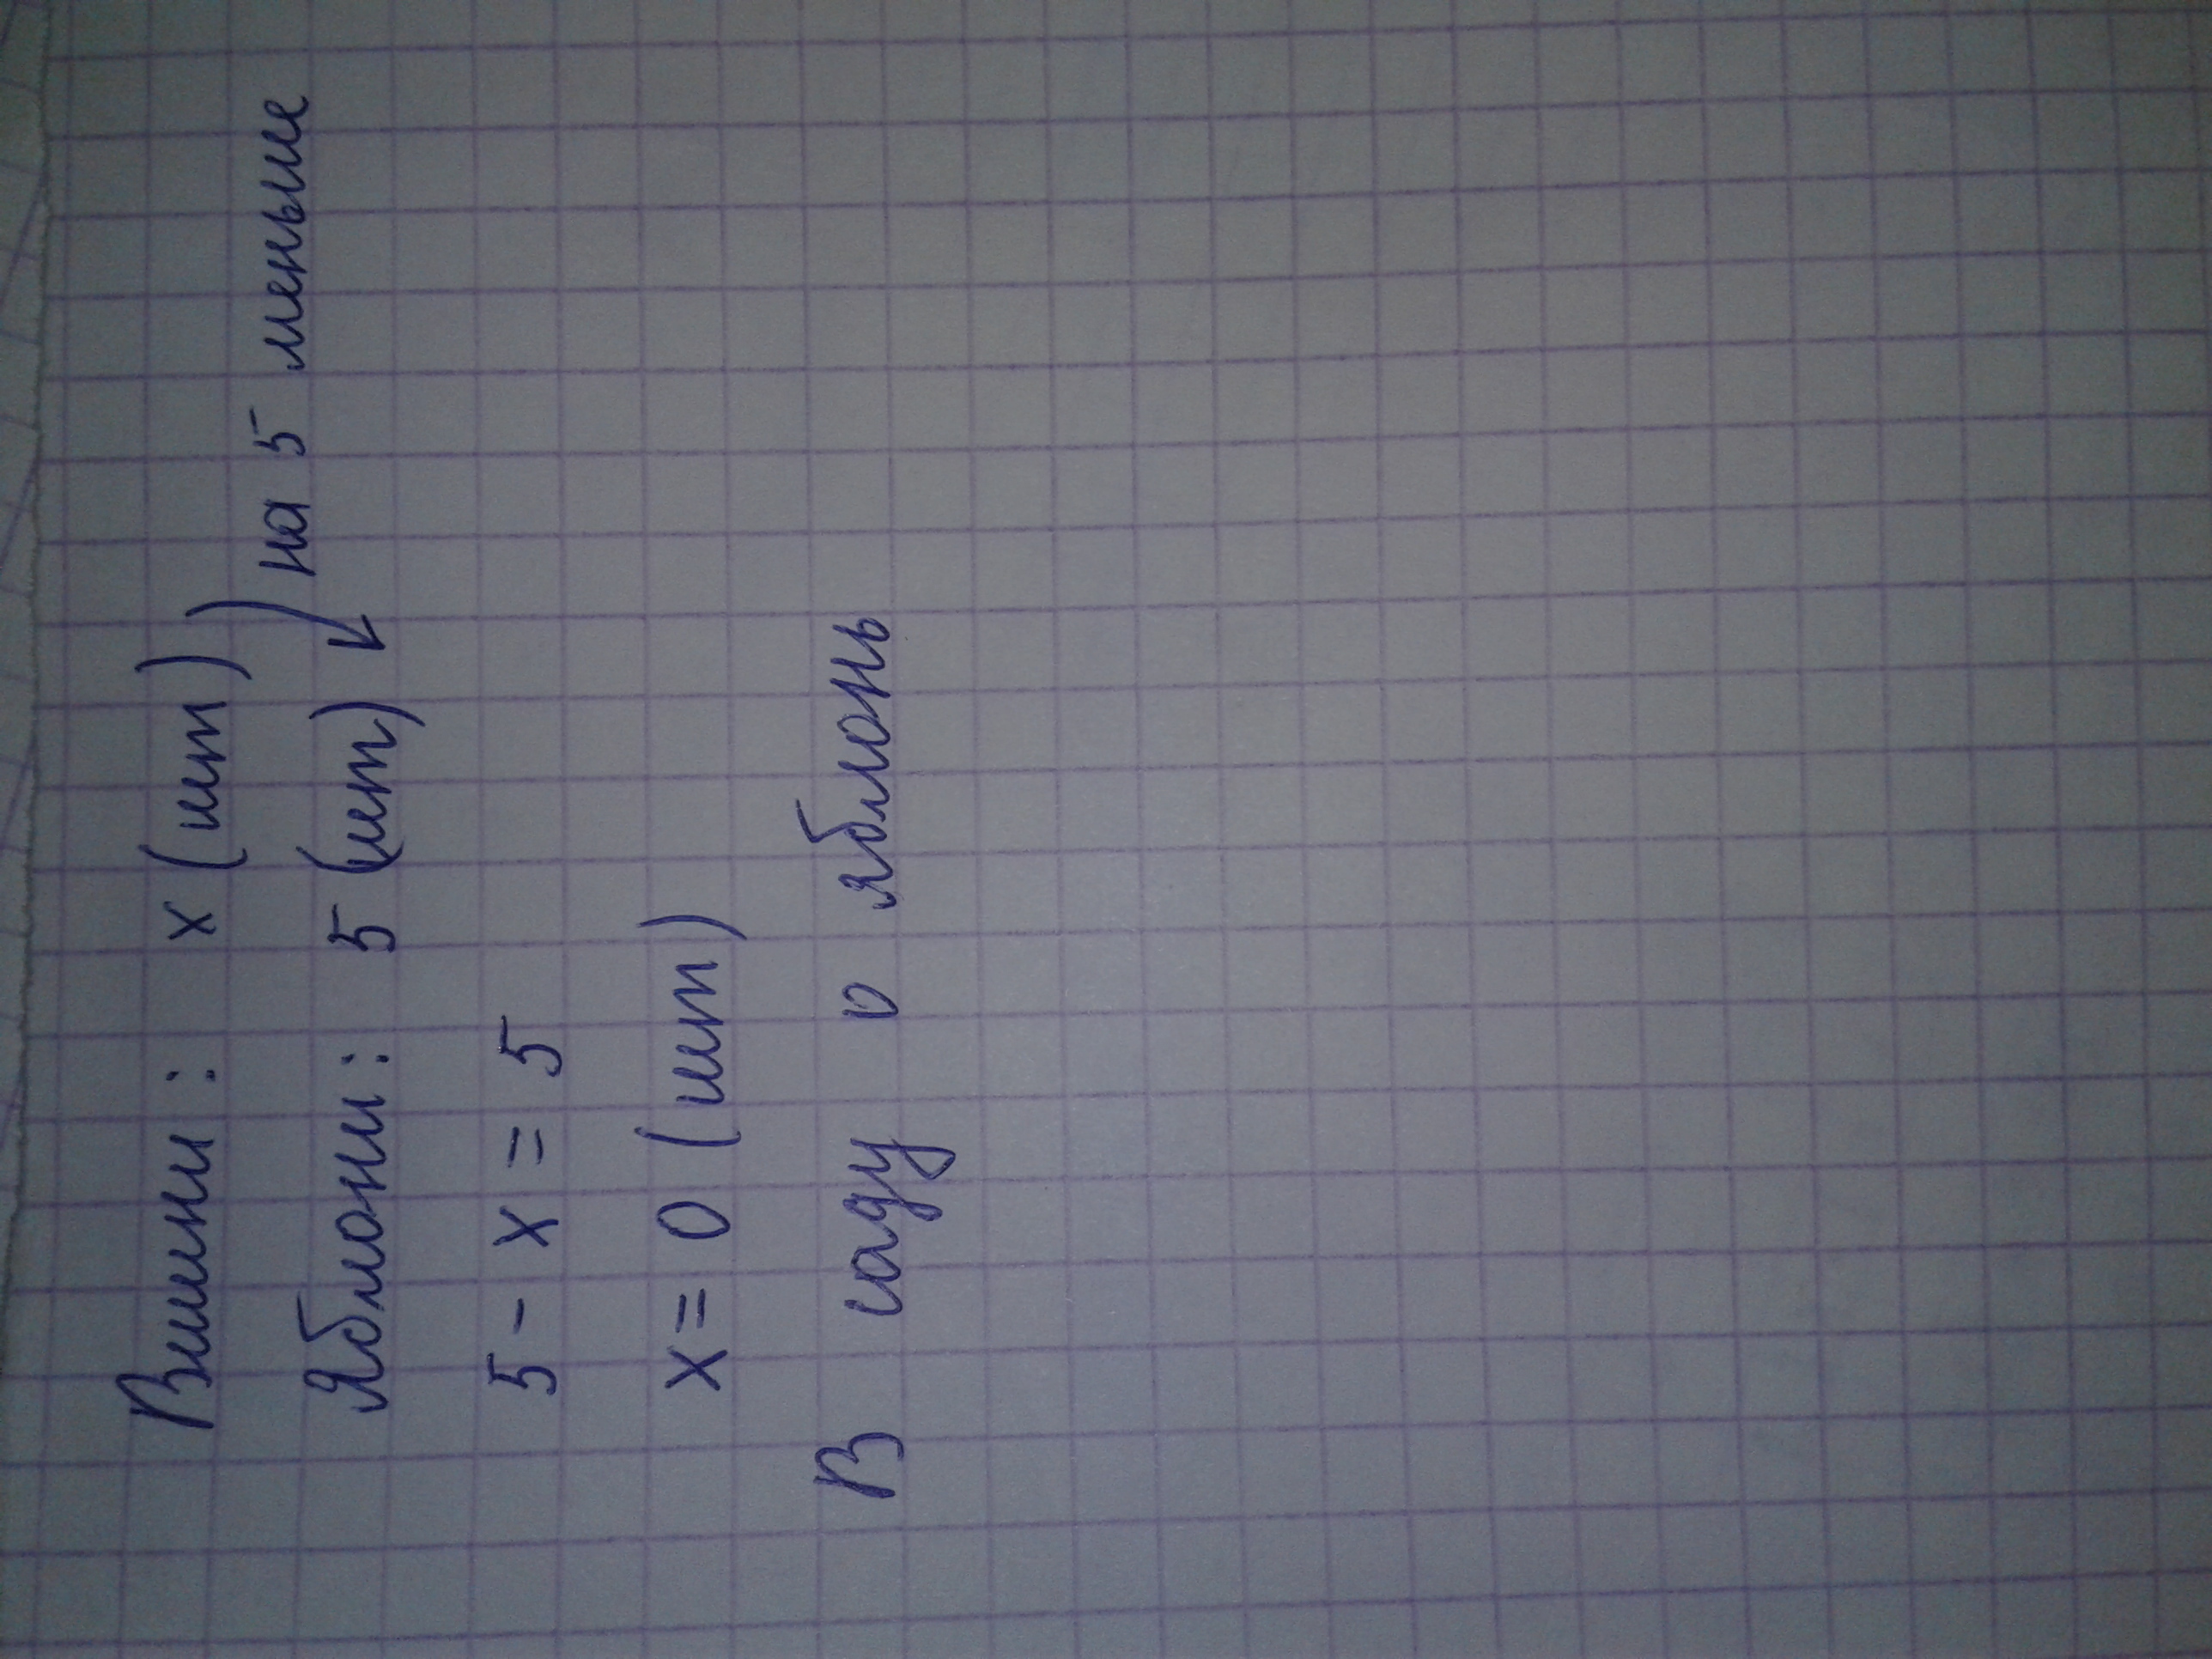 Вишни: x (шт)
на 5 меньше
Яблони: 5 (шт)
5 - x = 5
x = 0 (шт)
В саду 0 яблонь